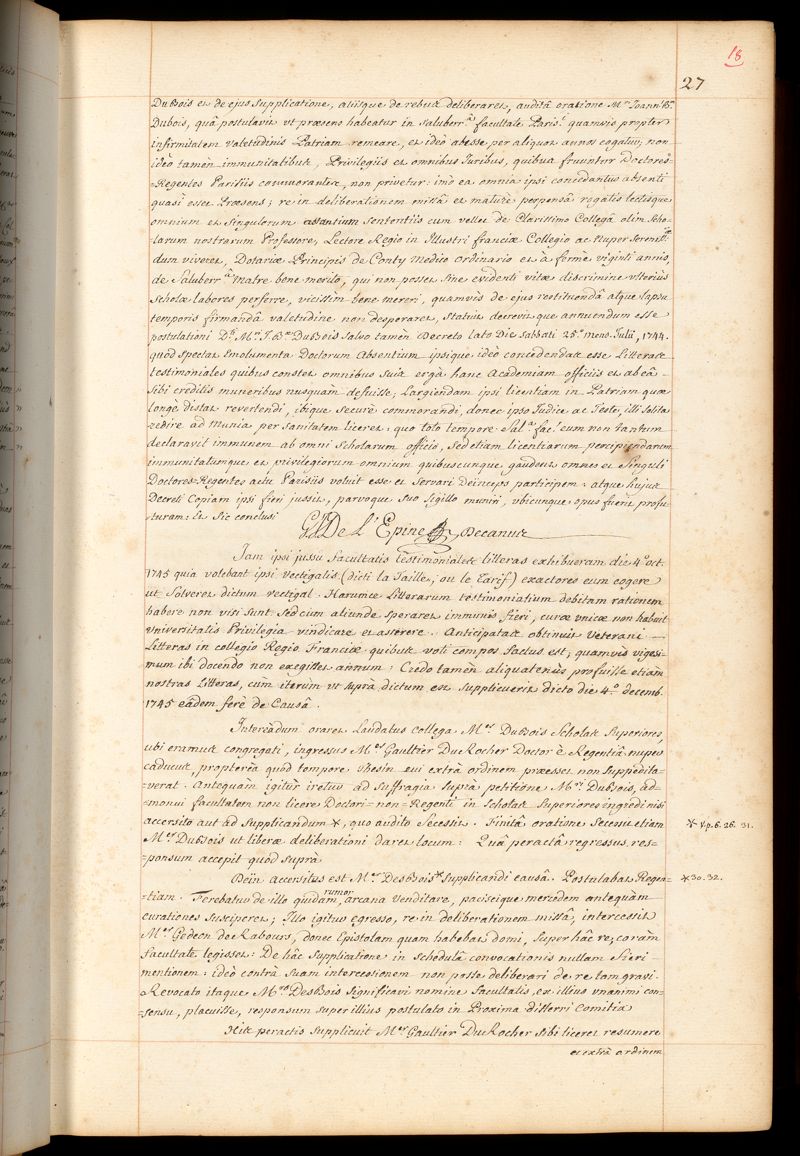 18
27
DuBois et de ejus Supplicatione, aliisque de rebus deliberaret, auditâ oratione Mri Joann. Bæ
Dubois, quâ postulavit ut præsens habeatur in saluberr.â facultate Paris.i quamvis propter
infirmitatem valetudinis Patriam remeare, et ideò abesse per aliquot annos cogatur; non
ideò tamèn immunitatibus, Privilegiis et omnibus Juribus, quibus fruuntur Doctores=
=Regentes Parisiis commorantes, non privetur: imò ea omnia ipsi concedantur absenti
quasi esset Præsens; re in deliberationem missâ et maturè perpensâ rogatis lectisque
omnium et Singulorum astantium sententiis cum vellet de Clarissimo Collegâ olim Scho=
larum nostrarum Professore, Lectore Regio in Illustri franciæ Collegio ac Nuper Sereniss.æ
dum viveret, Dotariæ Principis de Conty medico ordinario et à fermè viginti annis,
de Saluberr.â Matre bene merito, qui non posset sine evidenti vitæ discrimine ulteriùs
Scholæ labores perferre, vicissim bene mereri, quamvis de ejus restituendâ atque lapsu
temporis firmandâ valetudine non desperaret, Statuit decrevitque annuendum esse
postulationi D.ni Mri J. Bæ DuBois salvo tamèn Decreto lato Die Sabbati 25.â mens. Julii, 1744.
quòd spectat Emolumenta Doctorum Absentium ipsique ideò concedendas esse Litteras
testimoniales quibus constet omnibus Suis ergà hanc Academiam officiis et ab eâ=
sibi creditis muneribus nusquàm defuisse; Largiendam ipsi licentiam in Patriam quæ
longè distat revertendi, ibique securè commorandi, donec ipso Judice ac Teste, illi Solita
redire ad munia per sanitatem liceret: quo toto tempore Sal.a fac.s eum non tantum
declaravit immunem ab omni Scholarum officio, Sed etiam licentiarum percipiendarum
immunitatumque et privilegiorum omnium quibuscunque gaudent omnes et Singuli
Doctores=Regentes actu Parisiis voluit esse et servari deinceps participem: atque hujus
Decreti Copiam ipsi fieri jussit, parvoque Suo Sigillo muniri, ubicunque opus fuerit profu=
turam: Et Sic conclusi
G. J. De l'Epine Decanus
Jam ipsi jussu facultatis Testimoniales litteras exhibueram die 4.â oct.
1745 quia volebant ipsi vectigalis (dicti la Taille, ou le Tarif) exactores eum cogere
ut Solveret dictum vectigal. Harumce Litterarum testimonialium debitam rationem
habere non visi sunt. Sed cùm aliunde speraret immunis fieri, curæ unicæ non habuit
Universitatis Privilegia vindicare et asserere. Anticipatas obtinuit Veterani —
Litteras in collegio Regio Franciæ quibus voti compos factus est, quamvis vigesi=
mum ibi docendo non exegisset annum: Credo tamèn aliquatenùs profuisse etiàm
nostras Litteras, cùm iterùm ut suprà dictum est Supplicuerit dicto die 4.â decemb.
1745 eâdem ferè de Causâ.
Intereàdum oraret Laudatus Collega Mer DuBois Scholas Superiores,
ubi eramus congregati, ingressus Mer Gaultier DuRocher Doctor è Regentiâ nuper
caducus, proptereà quòd tempore thesin cui extrà ordinem præesset non Suppedita=
=verat. Antequàm igitùr iretur ad Suffragia Suprà petitione Mri DuBois, ad=
=monui facultatem non licere Doctori=non=Regenti in Scholas Superiores ingredi nisi
accersito aut Ad Supplicandum *, quo audito Secessit. Finitâ oratione Secessit etiàm
Mer DuBois ut liberæ deliberationi daret locum: Quâ peractâ regressus res=
=ponsum accepit quòd Suprà
* V.p. 6. 26. 31.
Deìn accersitus est Mer DesBois* Supplicandi causâ. Postulabat Regen=
=tiam. Ferebatur de illo quidam rumor, arcana venditare, paciscique mercedem antequàm
curationes Susciperet; Illo igitùr egresso, re in deliberationem missâ, intercessit
Mer Gedeon deRabours, donec Epistolam quam habebat domi, Super hâc re, coràm
facultate legisset: De hâc Supplicatione in schedulâ convocationis nullam fieri=
mentionem: ideò contrà Suam intercessionem non posse deliberari de re tam gravi.
Revocato itaque Mro DesBois significavi nomine Facultatis, ex illius unanimi con=
=sensu, placuisse, responsum super illius postulato in Proxima differri Comitia
* 30. 32.
His peractis Supplicuit Mer Gaultier DuRocher sibi liceret resumere
et extrà ordinem